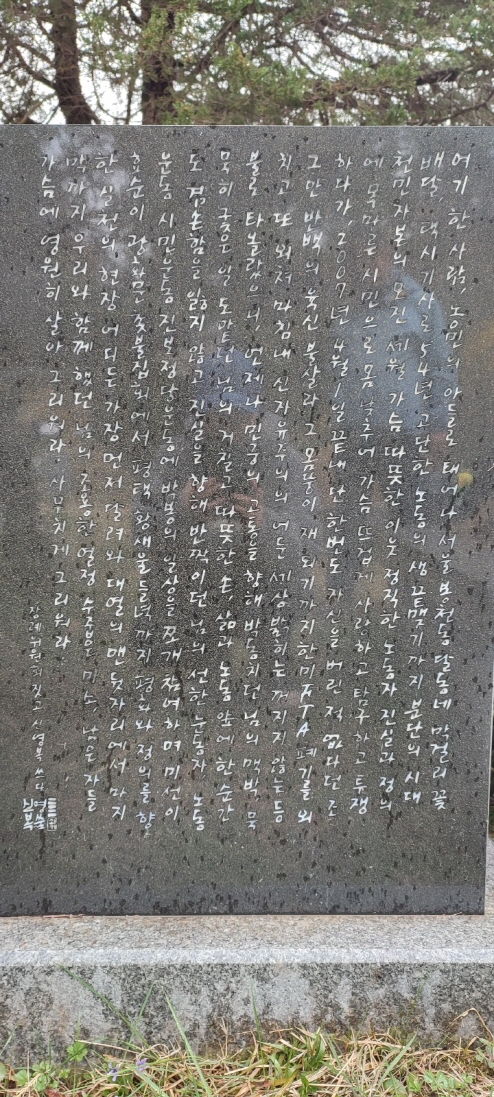 여기 한 사람, 농민의 아들로 태어나 서울 봉천동 달동네 막걸리 꽃
배달, 택시기사로 54년 고단한 노동의 생 끝맺기까지 분단의 시대
천민자본의 모진 세월 가슴 따뜻한 이웃 정직한 노동자 진실과 정의
에 목마른 시민으로 몸 낮추어 가슴 뜨겁게 사랑하고 탐구하고 투쟁
하다가, 2007년 4월 1일 끝내 단 한번도 자신을 버린 적 없다던 조
그만 반백의 육신 불살라 그 몸뚱이 재 되기까지 한미FTA 폐기를 외
치고 또 외쳐 마침내 신자유주의의 어둔 세상 밝히는 꺼지지 않는 등
불로 타올랐으니, 언제나 민중의 고통을 향해 박동치던 님의 맥박, 묵
묵히 궂은 일 도맡던 님의 거칠고 따뜻한 손, 삶과 노동 앞에 한 순간
도 겸손함을 잃지 않고 진실을 향해 반짝이던 님의 선한 눈동자, 노동
운동 시민운동 진보정당운동에 박봉의 일상을 쪼개 참여하며 미선이
효순이 광화문 촛불집회에서 평택 황새울 들녘까지 평화와 정의를 향
한 실천의 현장 어디든 가장 먼저 달려와 대열의 맨 뒷자리에서 마지
막까지 우리와 함께 했던 님의 조용한 열정 수줍은 미소, 남은 자들
가슴에 영원히 살아 그리워라 사무치게 그리워라
장례위원회 짓고 신영복 쓰다